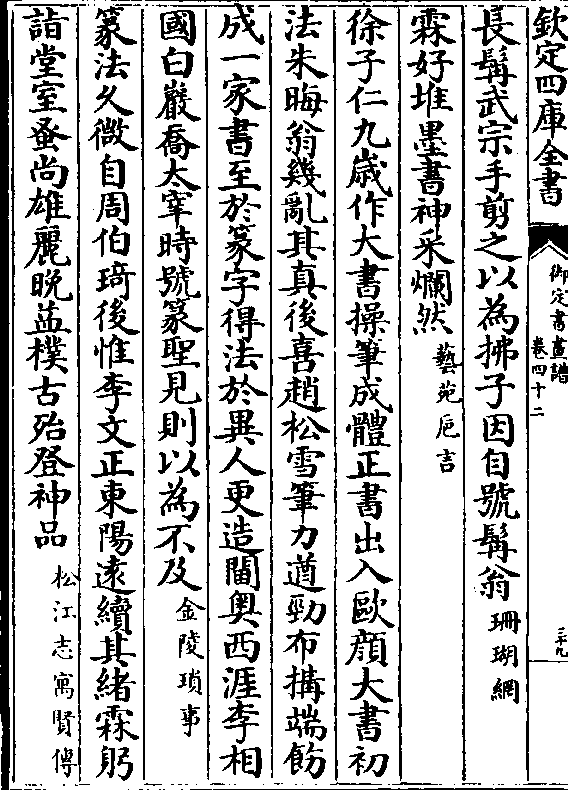 欽定四庫全書
御定書畫譜
卷四十二
三十九
長髯武宗手剪之以為拂子因自號髯翁珊瑚網
霖好堆墨書神采爛然藝苑巵言
徐子仁九歲作大書操筆成體正書出入歐顔大書初
法朱晦翁幾亂其真後喜趙松雪筆力遒勁布搆端飭
成一家書至於篆字得法於異人更造閫奥西涯李相
國白巖喬太宰時號篆聖見則以為不及金陵瑣事
篆法久微自周伯琦後惟李文正東陽遠續其緒霖躬
詣堂室蚤尚雄麗晩益樸古殆登神品松江志寓賢傳